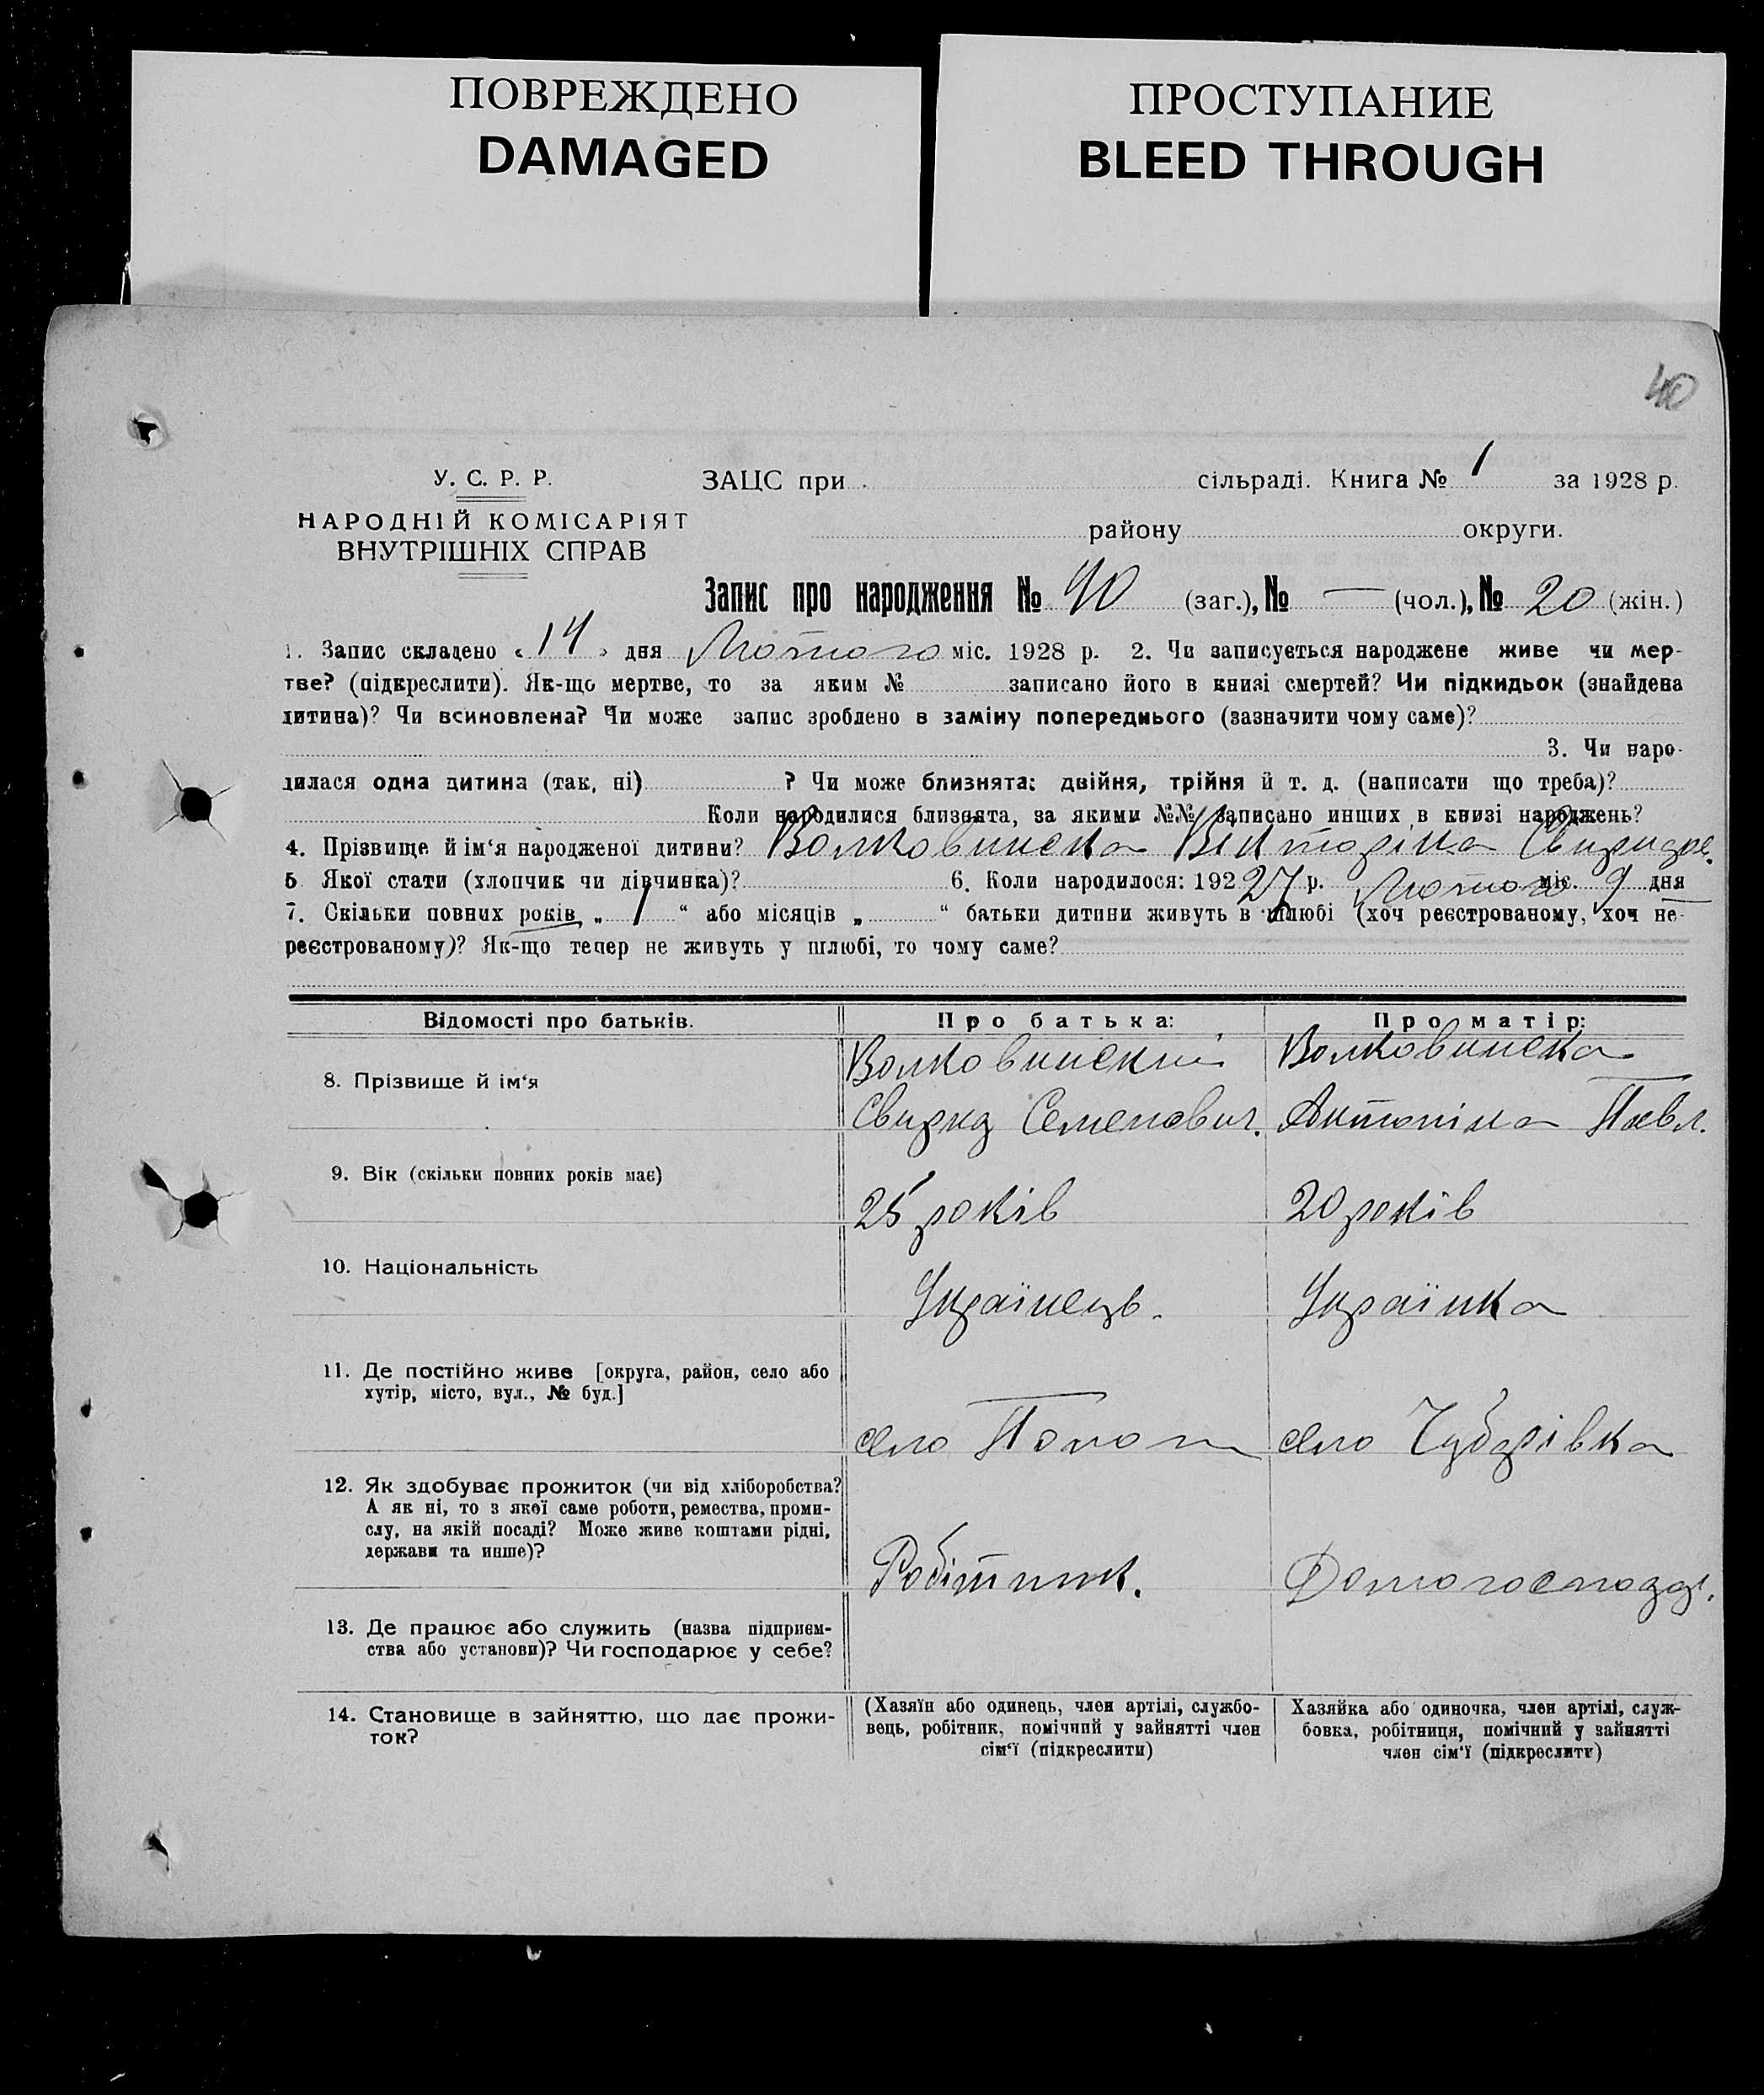 ПОВРЕЖДЕНО
DAMAGED
ПРОСТУПАНИЕ
BLEED THROUGH
40
У. С. Р. Р.
НАРОДНІЙ КОМІСАРІЯТ
ВНУТРІШНІХ СПРАВ
ЗАЦС при сільраді. Книга № 1 за 1928 р.
району округи.
Запис про народження № 40 (заг.), № — (чол.), № 20 (жін.)
1. Запис складено « 14 » дня Лютого міс. 1928 р. 2. Чи записується народжене живе чи мер-
тве? (підкреслити). Як-що мертве, то за яким № записано його в книзі смертей? Чи підкидьок (знайдена
дитина)? Чи всиновлена? Чи може запис зроблено в заміну попереднього (зазначити чому саме)?
3. Чи наро-
дилася одна дитина (так, ні) ? Чи може близнята: двійня, трійня й т. д. (написати що треба)?
Коли народилися близнята, за якими №№ записано инших в книзі народжень?
4. Прізвище й ім‘я народженої дитини? Волковинска Вікторіна Свиридов.
5 Якої стати (хлопчик чи дівчинка)? 6. Коли народилося: 192 27 р. Лютого міс. 9 дня
7. Скільки повних років „ 1 “ або місяців „ “ батьки дитини живуть в шлюбі (хоч реєстрованому, хоч не-
реєстрованому)? Як-що тепер не живуть у шлюбі, то чому саме?
Відомості про батьків.
Про батька:
Про матір:
8. Прізвище й ім‘я
Волковинский
Свирид Семенович.
Волковинска
Антоніна Павл.
9. Вік (скільки повних років має)
25 років
20 років
10. Національність
Українець.
Українка
11. Де постійно живе [округа, район, село або
хутір, місто, вул., № буд.]
село
село Чубарівка
12. Як здобуває прожиток (чи від хліборобства?
А як ні, то з якої саме роботи, ремества, проми-
слу, на якій посаді? Може живе коштами рідні,
держави та инше)?
Робітник.
Домогоспод.
13. Де працює або служить (назва підприєм-
ства або установи)? Чи господарює у себе?
14. Становище в зайняттю, що дає прожи-
ток?
(Хазяїн або одинець, член артілі, службо-
вець, робітник, помічний у зайнятті член
сім‘ї (підкреслити)
Хазяйка або одиночка, член артілі, служ-
бовка, робітниця, помічний у зайнятті
член сім‘ї (підкреслити)